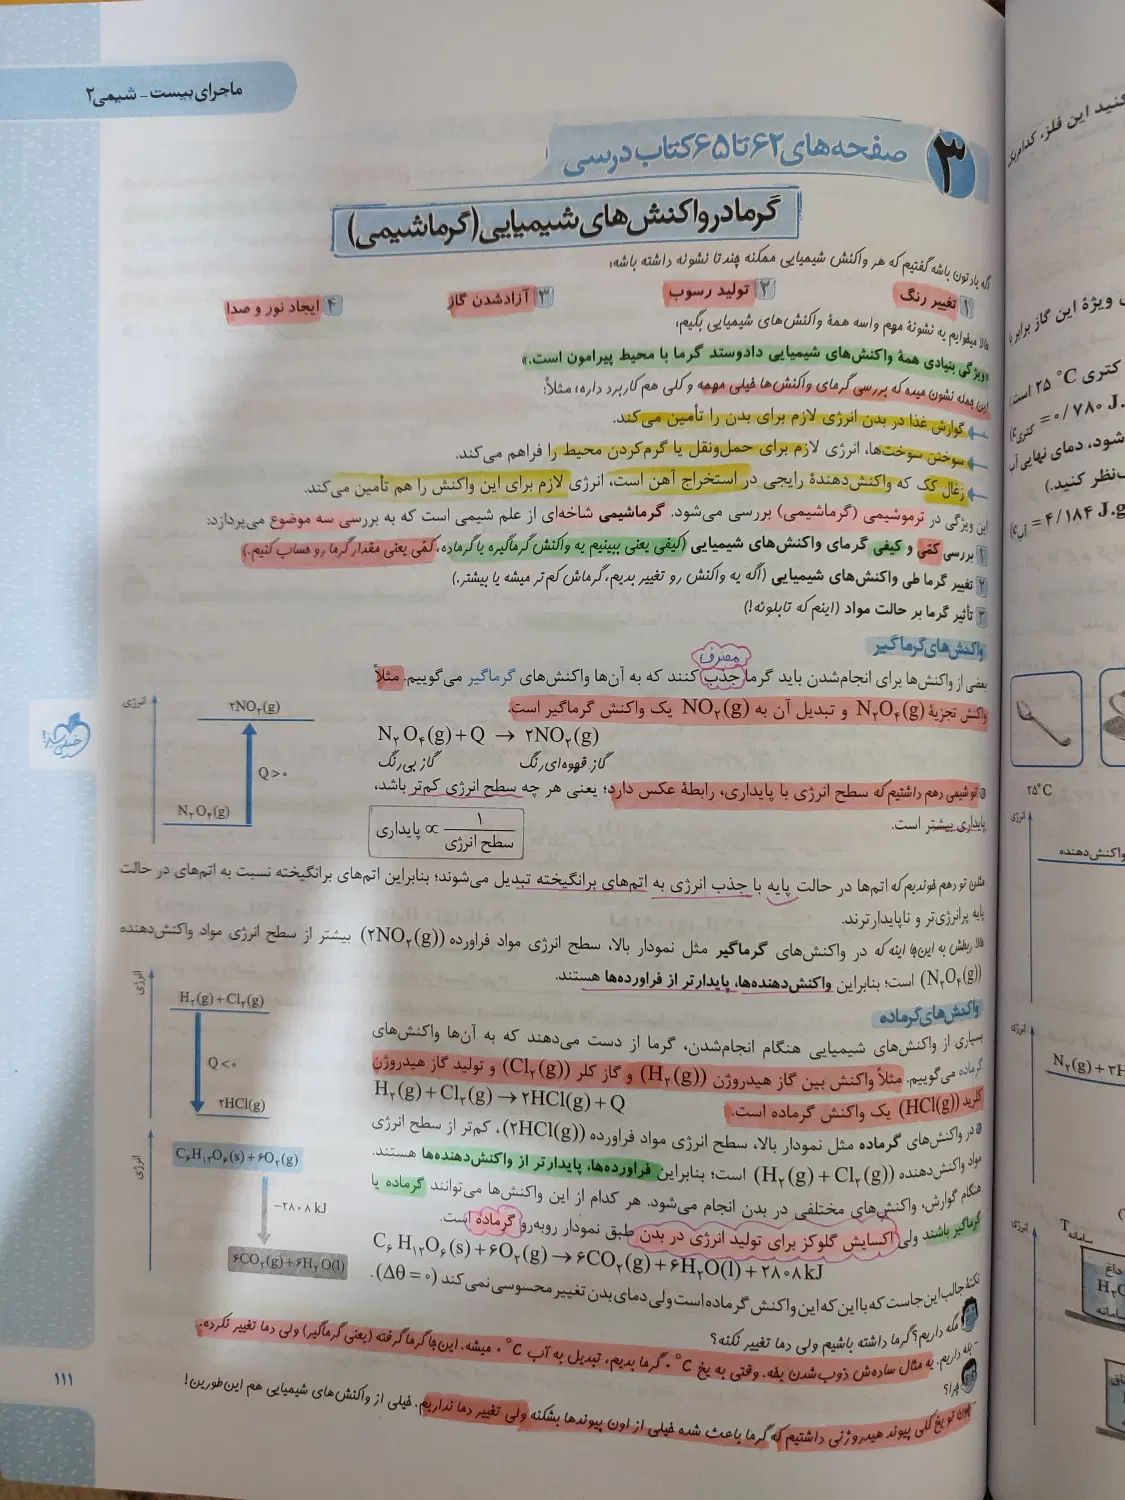 ماجرای بیست - شیمی ۲
۳ صفحه‌های ۶۲ تا ۶۵ کتاب درسی
گرما در واکنش‌های شیمیایی (گرماشیمی)
اگه یادتون باشه گفتیم که هر واکنش شیمیایی ممکنه چند تا نشونه داشته باشه:
۱ تغییر رنگ ۲ تولید رسوب ۳ آزاد شدن گاز ۴ ایجاد نور و صدا
حالا میخوایم یه نشونهٔ مهم واسه همهٔ واکنش‌های شیمیایی بگیم:
«ویژگی بنیادی همهٔ واکنش‌های شیمیایی دادوستد گرما با محیط پیرامون است.»
این جمله نشون میده که بررسی گرمای واکنش‌ها خیلی مهمه و کلی هم کاربرد داره؛ مثلاً:
گوارش غذا در بدن انرژی لازم برای بدن را تأمین می‌کند.
سوختن سوخت‌ها، انرژی لازم برای حمل‌ونقل یا گرم‌کردن محیط را فراهم می‌کند.
زغال کک که واکنش‌دهندهٔ رایجی در استخراج آهن است، انرژی لازم برای این واکنش را هم تأمین می‌کند.
این ویژگی در ترموشیمی (گرماشیمی) بررسی می‌شود. گرماشیمی شاخه‌ای از علم شیمی است که به بررسی سه موضوع می‌پردازد:
۱ بررسی کمّی و کیفی گرمای واکنش‌های شیمیایی (کیفی یعنی ببینیم یه واکنش گرماگیره یا گرماده، کمّی یعنی مقدار گرما رو حساب کنیم.)
۲ تغییر گرما طی واکنش‌های شیمیایی (اگه یه واکنش رو تغییر بدیم، گرماش کم‌تر میشه یا بیشتر.)
۳ تأثیر گرما بر حالت مواد (اینم که تابلوئه!)
واکنش‌های گرماگیر
مصرف
بعضی از واکنش‌ها برای انجام‌شدن باید گرما جذب کنند که به آن‌ها واکنش‌های گرماگیر می‌گوییم. مثلاً
واکنش تجزیهٔ N۲O۴(g) و تبدیل آن به NO۲(g) یک واکنش گرماگیر است.
N۲O۴(g) + Q → ۲NO۲(g)
گاز بی‌رنگ گاز قهوه‌ای‌رنگ
انرژی
۲NO۲(g)
Q > ۰
N۲O۴(g)
تو شیمی دهم داشتیم که سطح انرژی با پایداری، رابطهٔ عکس دارد؛ یعنی هر چه سطح انرژی کم‌تر باشد،
پایداری بیشتر است.
پایداری ∝ ۱ / سطح انرژی
مثلن تو دهم خوندیم که اتم‌ها در حالت پایه با جذب انرژی به اتم‌های برانگیخته تبدیل می‌شوند؛ بنابراین اتم‌های برانگیخته نسبت به اتم‌های در حالت
پایه پرانرژی‌تر و ناپایدارترند.
حالا ربطش به این‌جا اینه که در واکنش‌های گرماگیر مثل نمودار بالا، سطح انرژی مواد فراورده (۲NO۲(g)) بیشتر از سطح انرژی مواد واکنش‌دهنده
(N۲O۴(g)) است؛ بنابراین واکنش‌دهنده‌ها، پایدارتر از فراورده‌ها هستند.
واکنش‌های گرماده
بسیاری از واکنش‌های شیمیایی هنگام انجام‌شدن، گرما از دست می‌دهند که به آن‌ها واکنش‌های
گرماده می‌گوییم. مثلاً واکنش بین گاز هیدروژن (H۲(g)) و گاز کلر (Cl۲(g)) و تولید گاز هیدروژن
کلرید (HCl(g)) یک واکنش گرماده است.
H۲(g) + Cl۲(g) → ۲HCl(g) + Q
انرژی
H۲(g) + Cl۲(g)
Q < ۰
۲HCl(g)
در واکنش‌های گرماده مثل نمودار بالا، سطح انرژی مواد فراورده (۲HCl(g))، کم‌تر از سطح انرژی
مواد واکنش‌دهنده (H۲(g) + Cl۲(g)) است؛ بنابراین فراورده‌ها، پایدارتر از واکنش‌دهنده‌ها هستند.
هنگام گوارش، واکنش‌های مختلفی در بدن انجام می‌شود. هر کدام از این واکنش‌ها می‌توانند گرماده یا
گرماگیر باشند ولی اکسایش گلوکز برای تولید انرژی در بدن طبق نمودار روبه‌رو گرماده است.
C۶H۱۲O۶(s) + ۶O۲(g) → ۶CO۲(g) + ۶H۲O(l) + ۲۸۰۸ kJ
انرژی
C۶H۱۲O۶(s) + ۶O۲(g)
−۲۸۰۸ kJ
۶CO۲(g) + ۶H۲O(l)
نکتهٔ جالب این جاست که با این که این واکنش گرماده است ولی دمای بدن تغییر محسوسی نمی‌کند (Δθ = ۰).
مگه داریم؟ گرما داشته باشیم ولی دما تغییر نکنه؟
- بله داریم. یه مثال ساده‌ش ذوب شدن یخه. وقتی به یخ ۰°C گرما بدیم، تبدیل به آب ۰°C میشه. این‌جا گرما گرفته (یعنی گرماگیر) ولی دما تغییر نکرده.
چرا؟
- چون تو یخ کلی پیوند هیدروژنی داشتیم که گرما باعث شده خیلی از اون پیوندها بشکنه ولی تغییر دما نداریم. خیلی از واکنش‌های شیمیایی هم این‌طورین!
۱۱۱
کنید این فلز، کدام‌یک
ویژهٔ این گاز برابر با
کتری ۲۵ °C است
۰/۷۸۰ J.
شود، دمای نهایی آب
نظر کنید.)
۴/۱۸۴ J.g
۲۵°C
انرژی
واکنش‌دهنده
انرژی
انرژی
سامانه
داغ